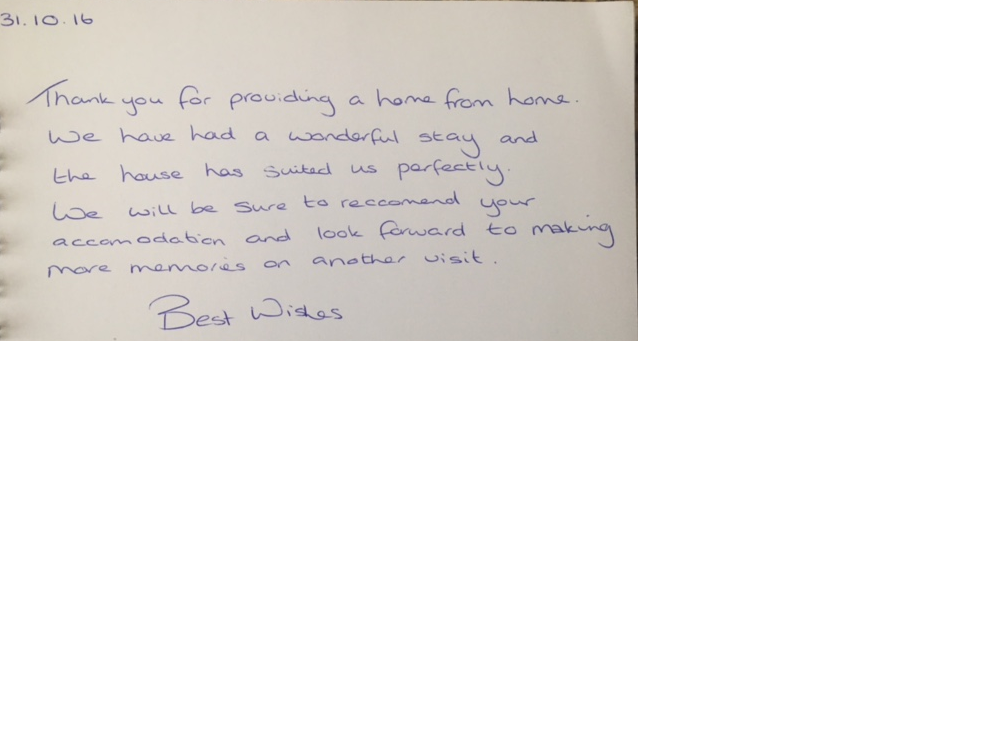 31.10.16
Thank you for providing a home from home.
We have had a wonderful stay and
the house has suited us perfectly.
We will be sure to reccomend your
accomodation and look forward to making
more memories on another visit.
Best Wishes